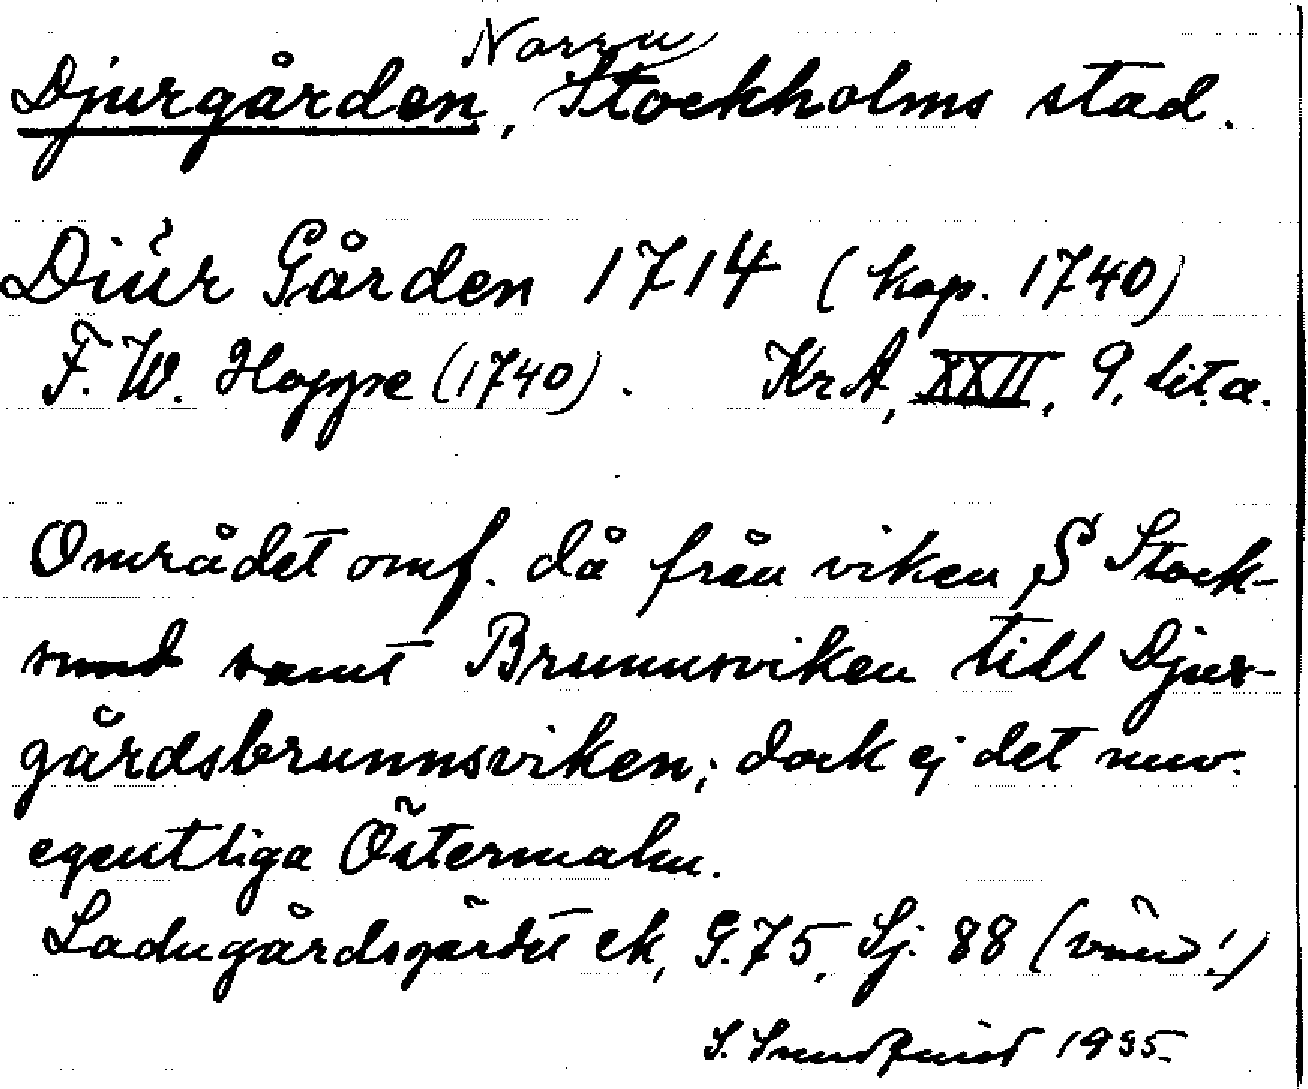 Norra
Djurgården, Stockholms stad.
Diúr Gården 1714 (kop. 1740)
F. W. Hoppe (1740). KrA, XXII, 9, lit. a.
Området omf. då från viken S Stock-
sund samt Brunnsviken till Djur-
gårdsbrunnsviken; dock ej det nuv.
egentliga Östermalm.
Ladugårdsgärdet ek, G. 75, Sj. 88 (vänd!)
S. 1935.